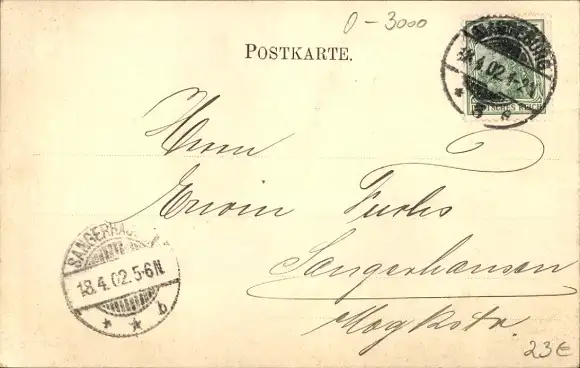 0-3000
POSTKARTE.
MAGDEBURG
18.4.02.1-2N
DEUTSCHES REICH
Herrn
Erwin Fuchs
Sangerhausen
SANGERHAUSEN
18.4.02.5-6N
b
23€